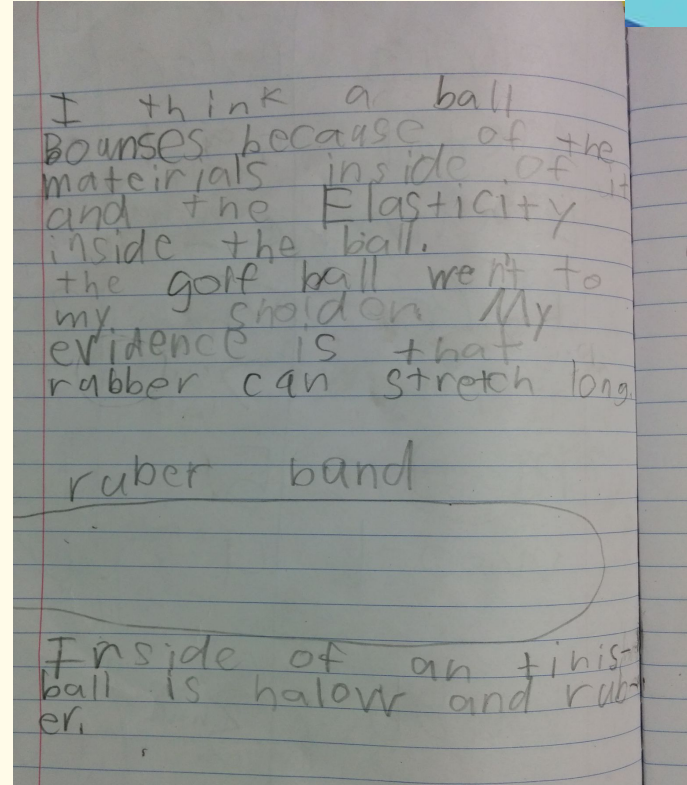 I think a ball
Bounses because of the
mateirials inside of it
and the Elasticity
inside the ball.
the golf ball went to
my sholdon My
evidence is that
rubber can stretch long.
ruber band
Inside of an tinis-
ball is halow and rub-
er.